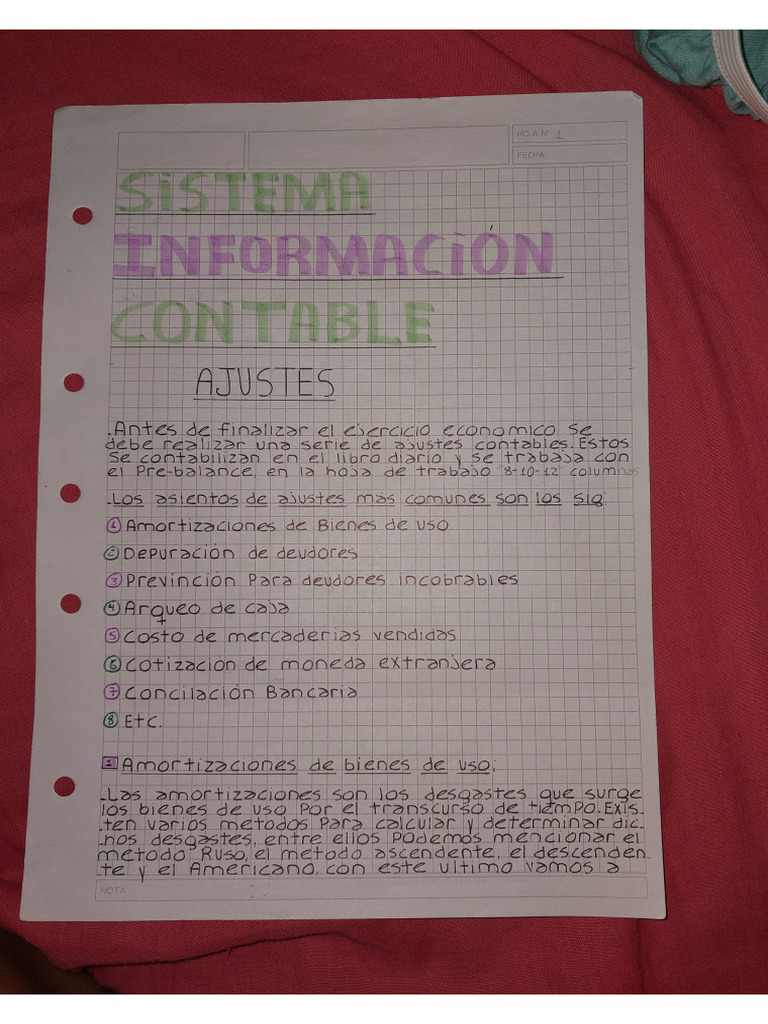 HOJA N° 1
FECHA
SiSTEMA
INFORMACiÓN
CONTABLE
AJUSTES
.Antes de finalizar el ejercicio economico se
debe realizar una serie de ajustes contables. Estos
se contabilizan en el libro diario y se trabaja con
el Pre-balance, en la hoja de trabajo "8-10-12" columnas
.Los asientos de ajustes más comunes son los sig:
1 Amortizaciones de Bienes de uso
2 Depuración de deudores
3 Previnción Para deudores incobrables
4 Arqueo de caja
5 Costo de mercaderías vendidas
6 Cotización de moneda extranjera
7 Concilación Bancaria
8 Etc.
1 Amortizaciones de bienes de uso;
.Las amortizaciones son los desgastes que surge
los bienes de uso Por el transcurso de tiempo. Exis-
ten varios metodos Para calcular y determinar dic-
hos desgastes, entre ellos Podemos mencionar el
metodo Ruso, el metodo ascendente, el descenden-
te y el Americano, con este ultimo vamos a
NOTA